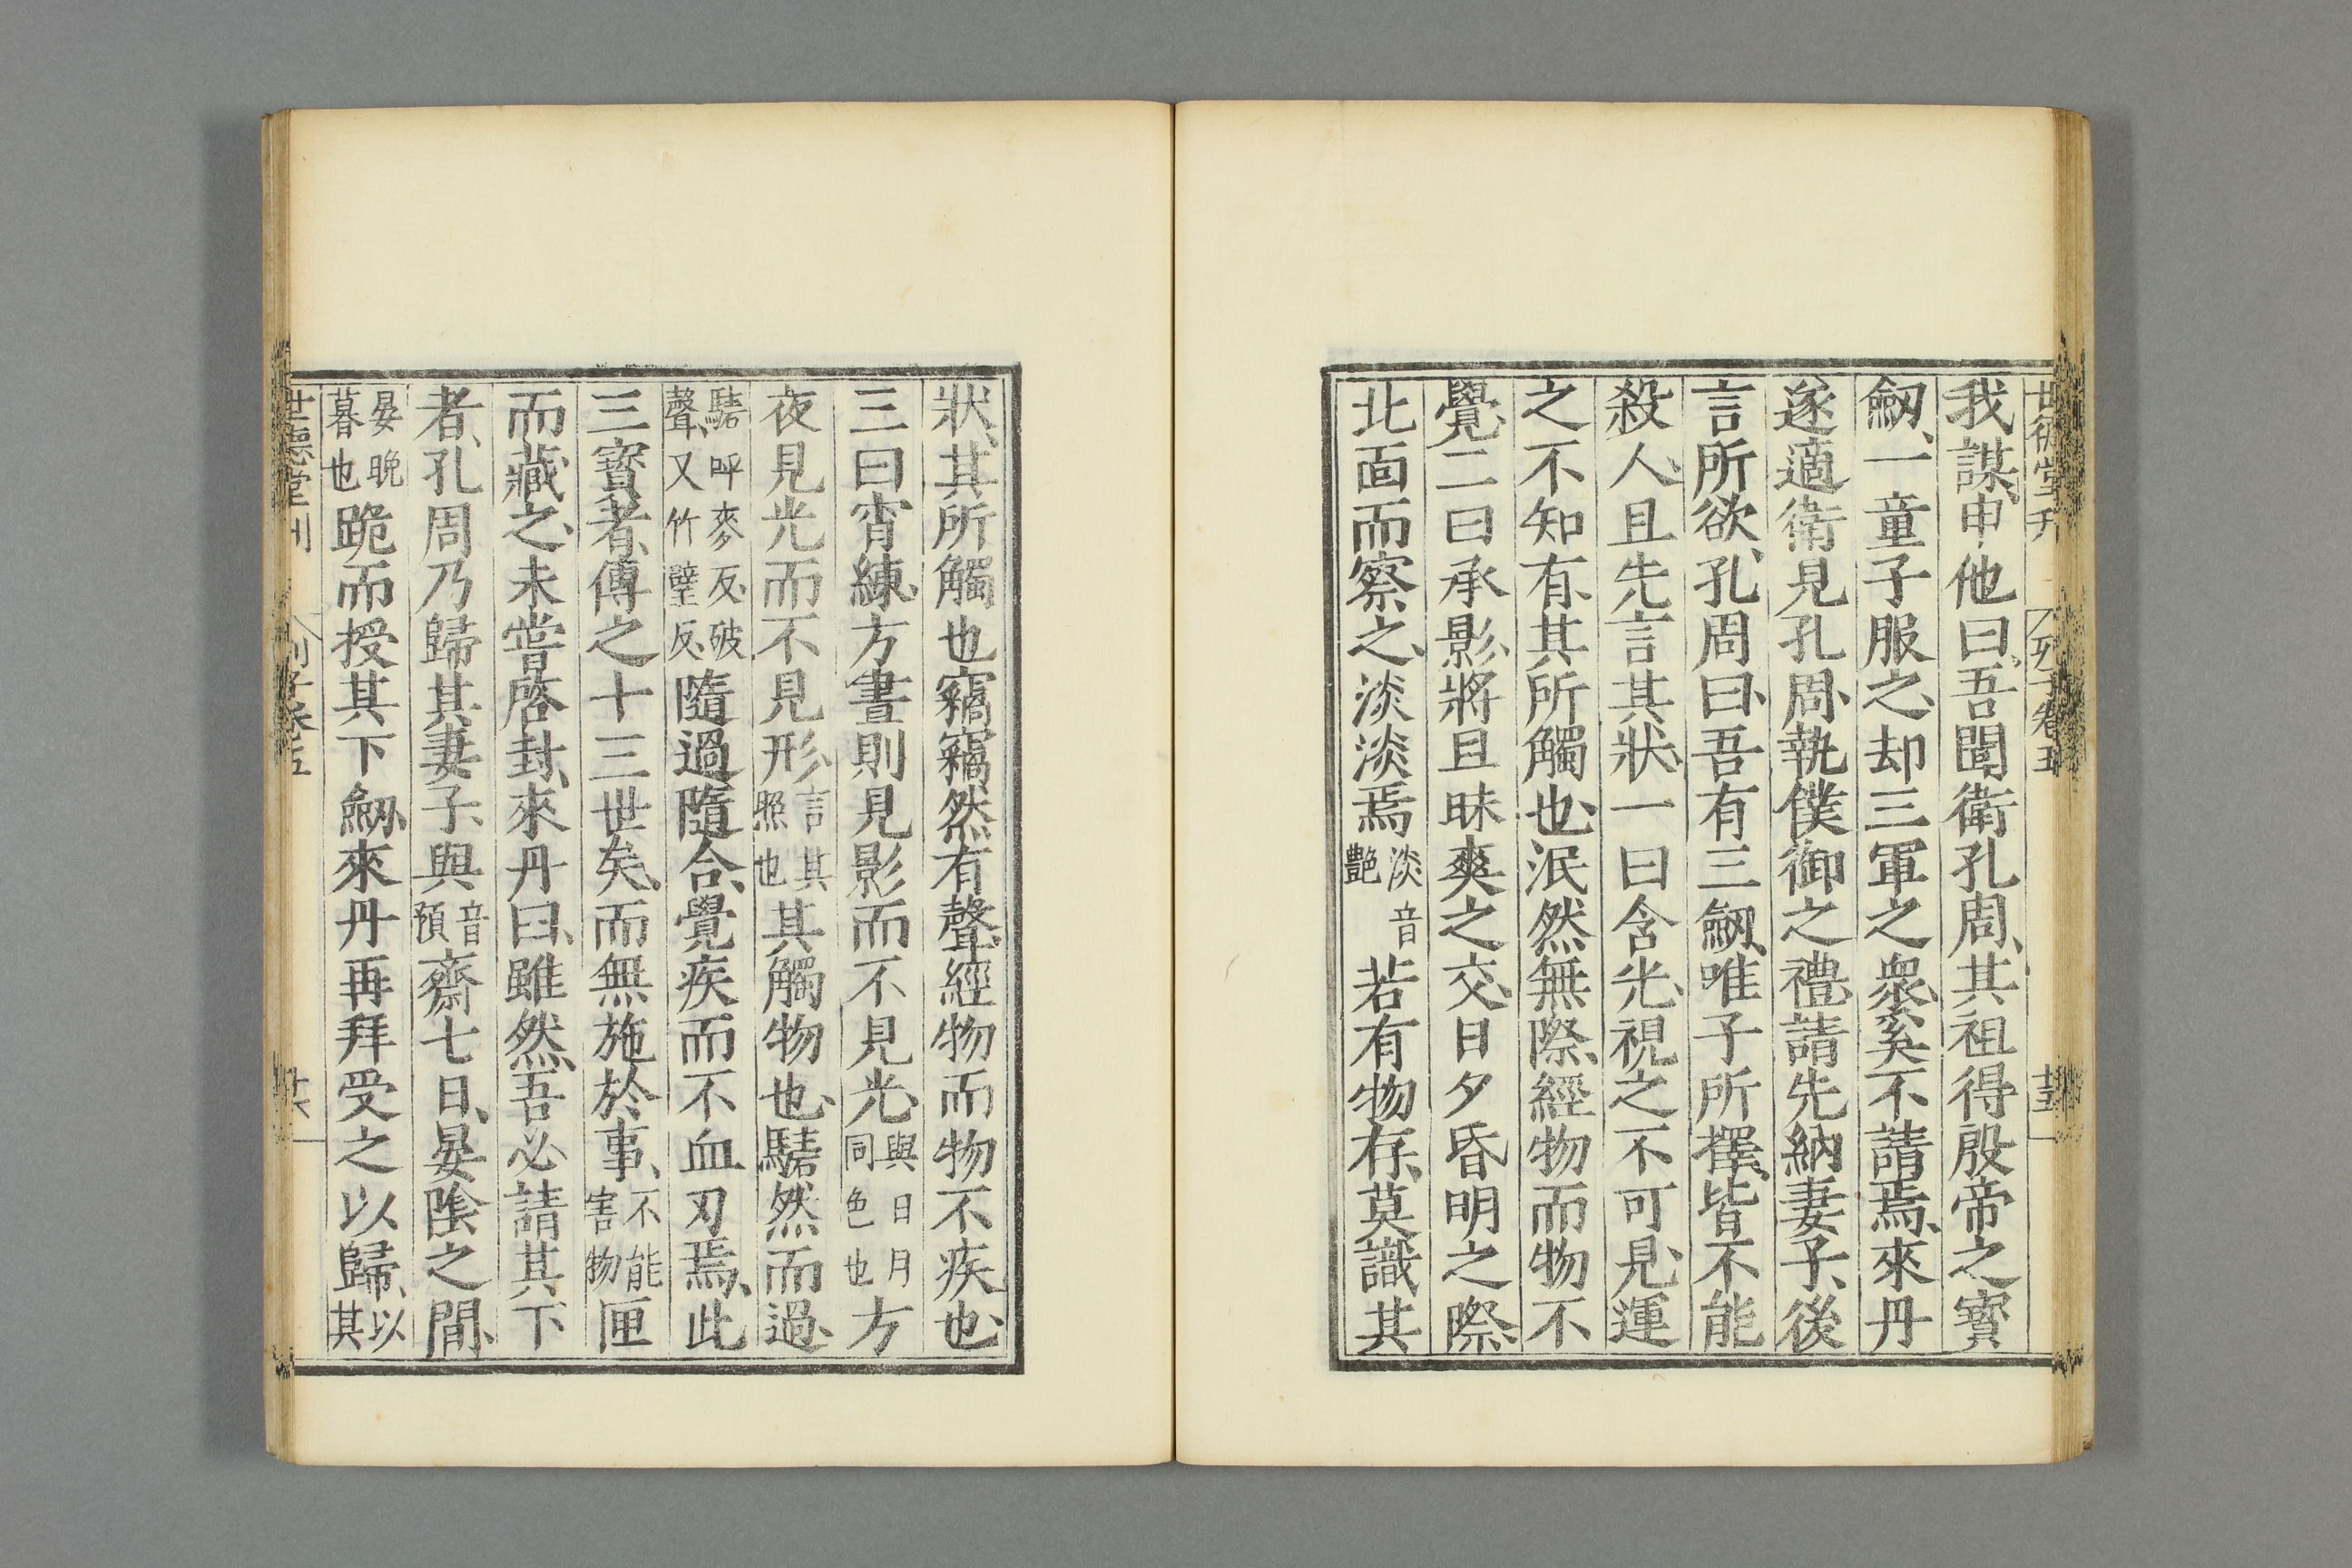 世德堂刊 列子卷五
我謀申他曰吾聞衛孔周、其祖得殷帝之寶
劒、一童子服之、却三軍之衆、奚不請焉、來丹
遂適衛見孔周、執僕御之禮、請先納妻子、後
言所欲、孔周曰、吾有三劒、唯子所擇、皆不能
殺人、且先言其狀、一曰含光、視之不可見、運
之不知有、其所觸也、泯然無際、經物而物不
覺、二曰承影、將旦昧爽之交、日夕昏明之際、
北面而察之、淡淡焉淡音艷若有物存、莫識其
狀、其所觸也竊竊然有聲、經物而物不疾也、
三曰宵練、方晝則見影而不見光、與日月同色也方
夜見光而不見形、言其照也其觸物也、騞然而過、
騞呼麥反、破聲、又竹壁反、隨過隨合、覺疾而不血刃焉、此
三寶者、傳之十三世矣、而無施於事、不能害物匣
而藏之、未嘗啓封、來丹曰、雖然、吾必請其下
者、孔周乃歸其妻子、與音預齋七日、晏陰之間、
晏晚暮也跪而授其下劒、來丹再拜受之以歸、以其
世德堂刊 列子卷五 廿六